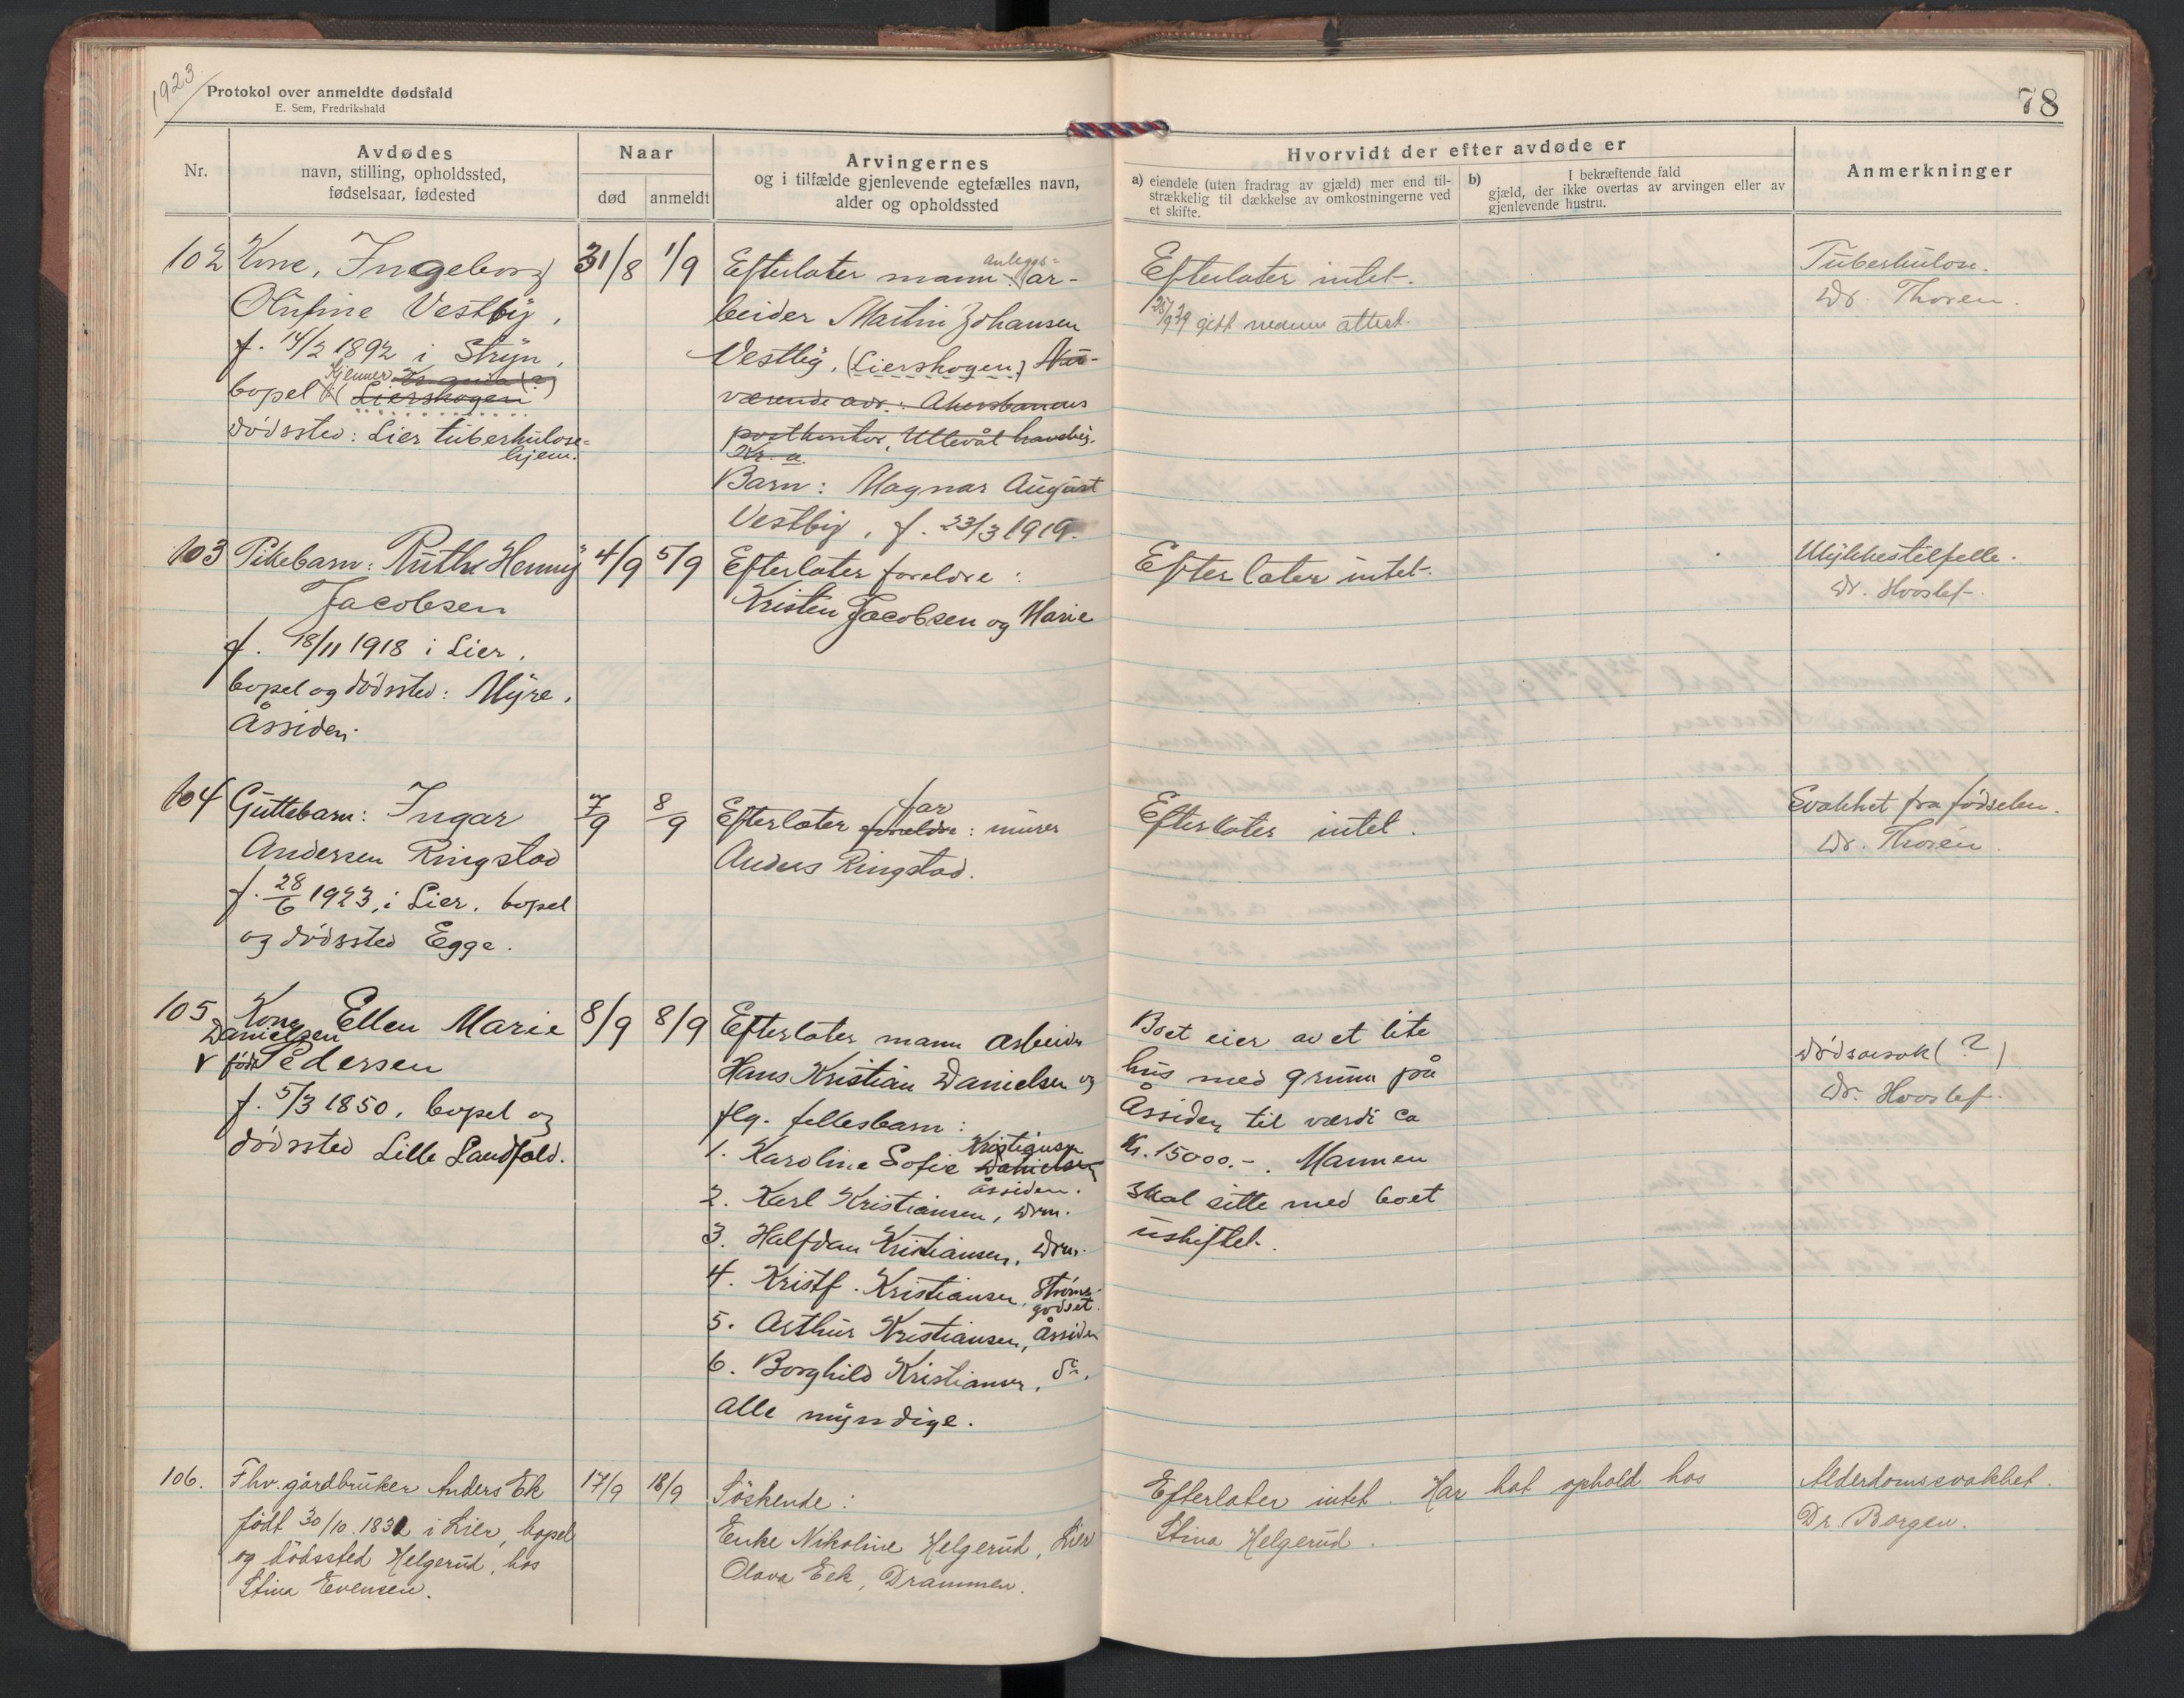 1923
Protokol over anmeldte dødsfald
E. Sem, Fredrikshald
78
Nr.
Avdødes
navn, stilling, opholdssted,
fødselsaar, fødested
Naar
død
anmeldt
Arvingernes
og i tilfælde gjenlevende egtefælles navn,
alder og opholdssted
Hvorvidt der efter avdøde er
a) eiendele (uten fradrag av gjæld) mer end til-
strækkelig til dækkelse av omkostningerne ved
et skifte.
b) I bekræftende fald
gjæld, der ikke overtas av arvingen eller av
gjenlevende hustru.
Anmerkninger
102
Kone, Ingeborg
Olufine Vestby,
f. 14/2 1892 i Stryn,
Kjenner
bopel i Lierskogen
dødssted: Lier tuberkulose=
hjem.
31/8
1/9
anleggs=
Efterlater mann ar-
beider Martin Johansen
Vestby, (Lierskogen) Nu-
værende adr.: Akersbanens
postkontor, Ullevål haveby.
Kr. a.
Barn: Magnar August
Vestby, f. 23/3 1919.
Efterlater intet.
25/9 29 gitt attest.
Tuberkulose.
Dr. Thoren.
103
Pikebarn: Ruth Henny
Jacobsen
f. 18/11 1918 i Lier.
bopel og dødssted: Myre,
Åssiden.
4/9
5/9
Efterlater foreldre:
Kristen Jacobsen og Marie
Efterlater intet.
Ulykkestilfelle.
Dr. Hovslef.
104
Guttebarn: Ingar
Andersen Ringstad
f. 28/6 1923, i Lier. bopel
og dødssted Egge.
7/9
8/9
far
Efterlater foreldre: murer
Anders Ringstad.
Efterlater intet.
Svakhet fra fødselen.
Dr. Thorén.
105
Kone Ellen Marie
Danielsen
v født Pedersen
f. 5/3 1850, bopel og
dødssted Lille Landfald.
8/9
8/9
Efterlater mann arbeider
Hans Kristian Danielsen og
flg. fellesbarn:
Kristiansen
1. Karoline Sofie Danielsen
Åssiden.
2. Karl Kristiansen, Drm.
3. Halfdan Kristiansen, Drm.
4. Kristf. Kristiansen, Strøms-
godset.
5. Arthur Kristiansen, Åssiden
6. Borghild Kristiansen, do.
Alle myndige.
Boet eier av et lite
hus med grunn på
Åssiden til værdi ca
Kr. 15000.-. Mannen
skal sitte med boet
uskiftet.
Dødsårsak (?)
Dr. Hovslef.
106.
Fhv. gårdbruker Anders Ek
født 30/10 1831 i Lier, bopel
og dødssted Helgerud, hos
Stina Evensen.
17/9
18/9
Søskende:
Enke Nikoline Helgerud, Lier
Olava Eek, Drammen.
Efterlater intet. Har hat ophold hos
Stina Helgerud.
Alderdomssvakhet.
Dr. Borgen.